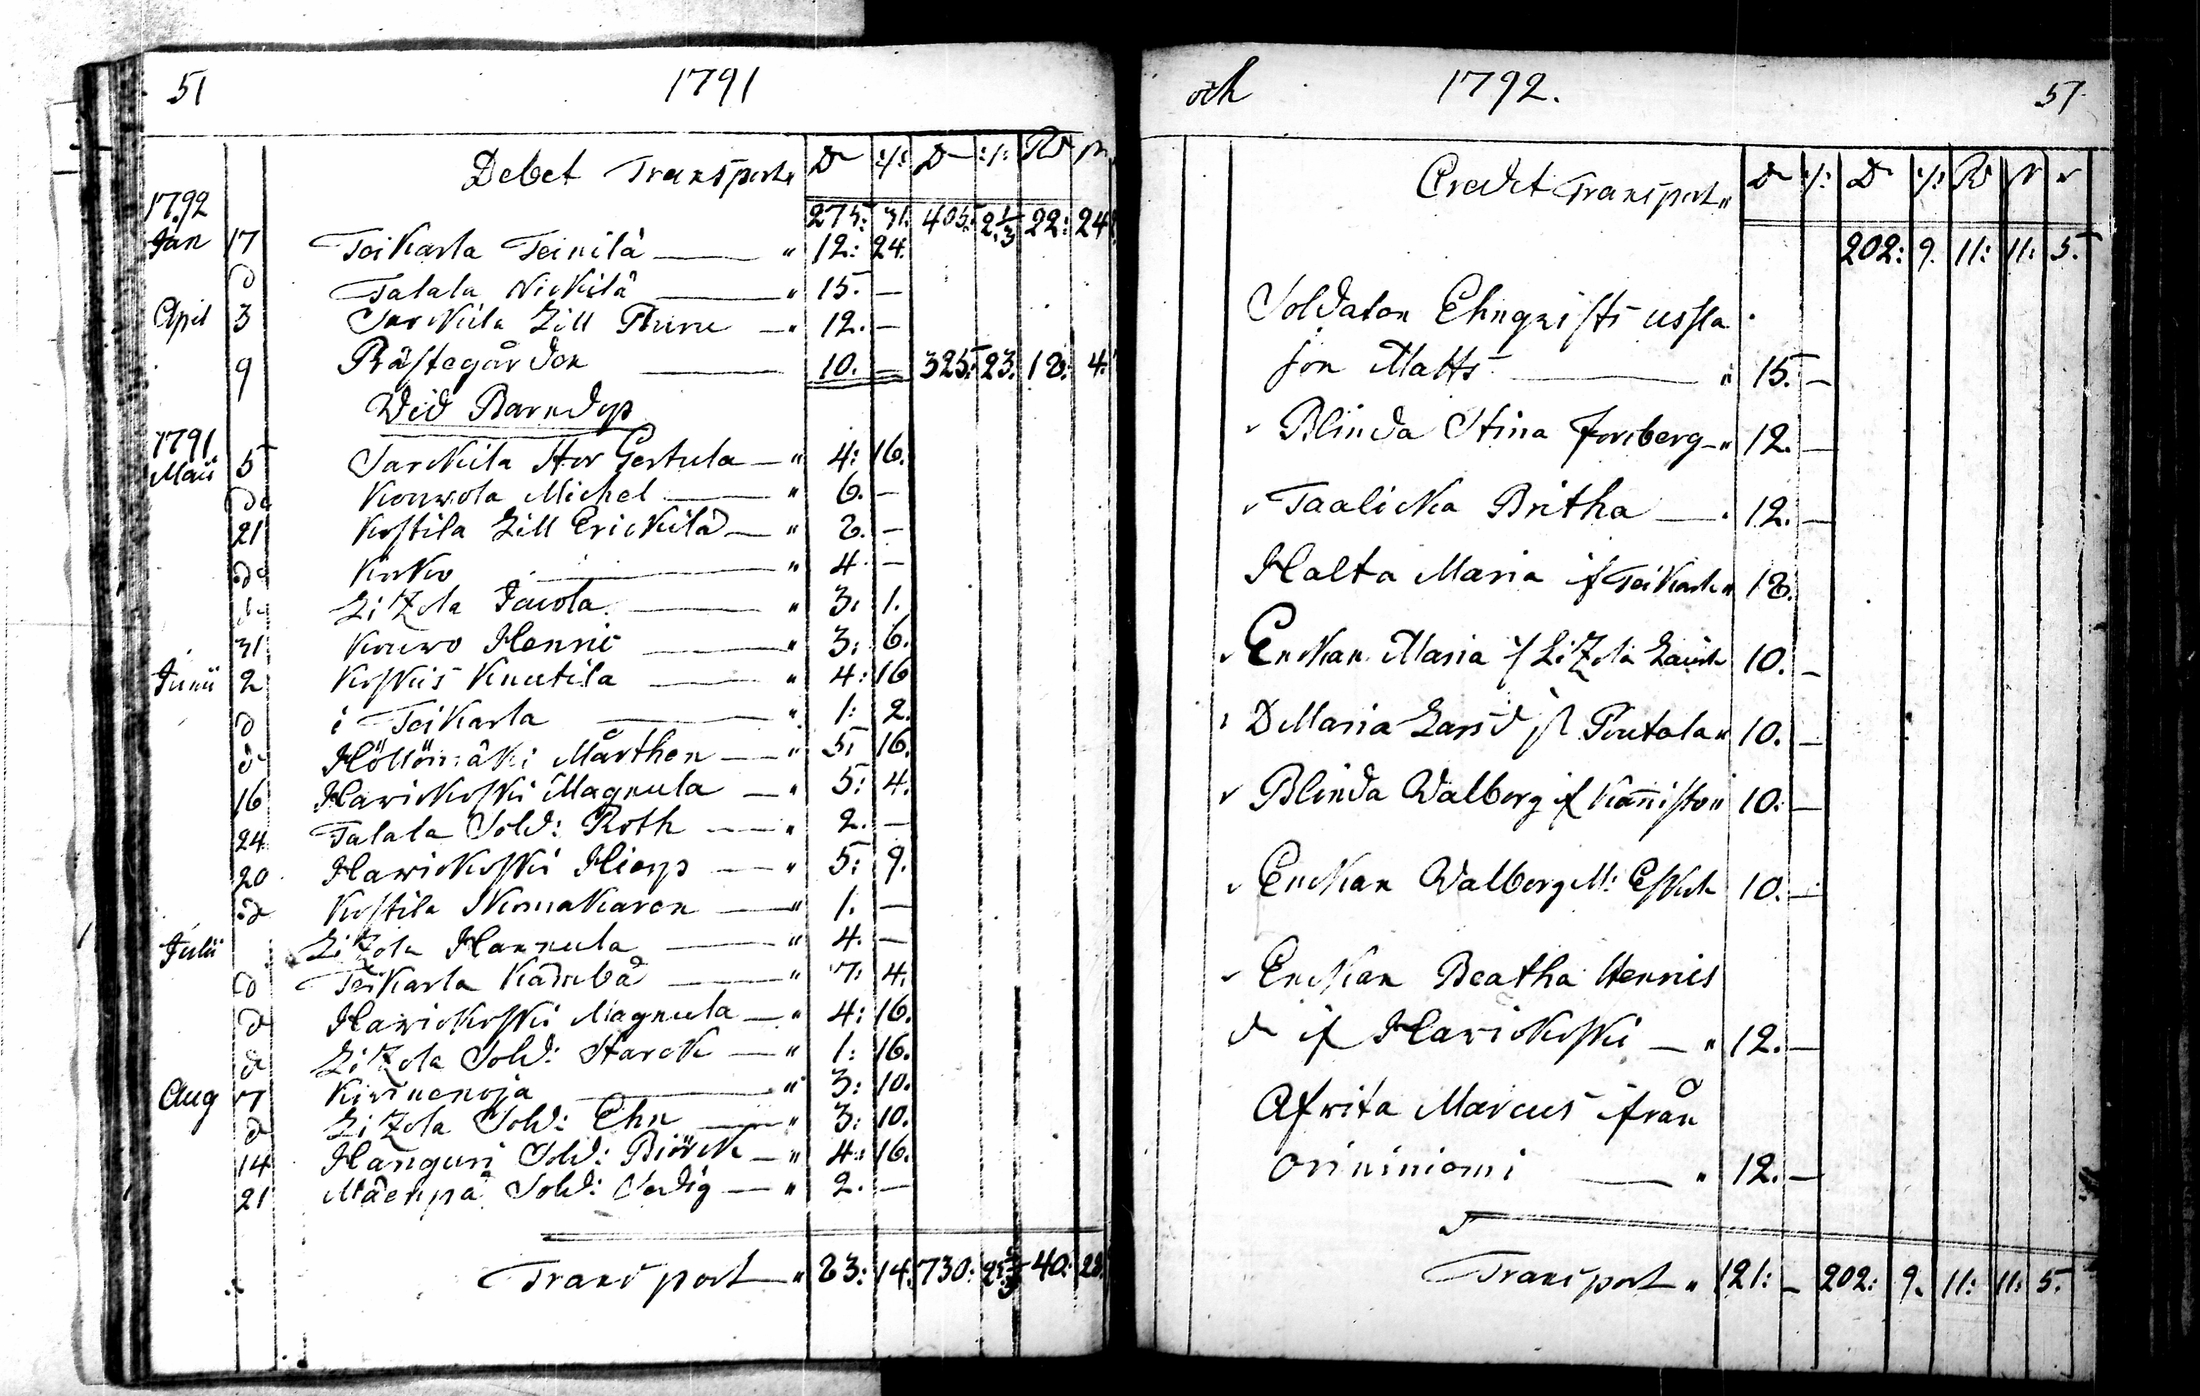 51 1791
Debet Transport „ D :/: D :/: RD
1792 275: 31. 405: 2 1/3 22: 24
Jan 17 Teikarla Teinilä — „ 12: 24.
d Talala Nickilä — „ 15. —
April 3 Sarckila Lill Thuru — „ 12. —
9 Prästegården — 10. — 325: 23. 18: 4:
Vid Barndop
1791
Maii 5 Sarckila Stor Gertula — „ 4: 16.
do Kouvola Michel — „ 6. —
21 Kostila Lill Erickilä — „ 8. —
do Kirko — „ 4 —
d: LiZola Jacola — „ 3. 1.
31 Kauvo Henric — „ 3: 6.
Junii 2 Koskis Knutila — „ 4: 16
d i Teikarla — „ 1: 2.
d Höllömäki Mårthen — „ 5. 16.
16 Haviokoski Magnula — „ 5: 4.
24 Talala Sold: Roth — „ 2. —
20 Haviokoski Hiorp — „ 5: 9.
d Kostila Skomakaren — „ 1. —
Julii LiZola Hannula — „ 4. —
d Teikarla Kåmbå — „ 7: 4.
d Haviokoski Magnula — „ 4: 16.
d LiZola Sold: Starck — „ 1: 16.
Aug 7 Kivinenoja — „ 3: 10.
d LiZola Sold: Ehn — „ 3: 10.
14 Hanguri Sold: Biörck — „ 4: 16.
21 Mäenpä Sold: — „ 2. —
Transport „ 83: 14. 730: 40: 28.
och 1792. 51
Credit Transport „ D :/: D :/: RD
202: 9. 11: 11: 5.
Soldaten Ehnqvists ussla
son Matts — „ 15. —
Blinda Stina Forsberg — „ 12. —
Taalicka Britha — 12. —
Halta Maria if Teikarla „ 18.
Enckan Maria if LiZola 10. —
D Maria Larsd if Poutala „ 10. —
Blinda Walborg if Kännistö „ 10. —
Enckan Walborg M: 10. —
Enckan Beatha Henrics
d if Haviokoski — „ 12. —
Afvita Marcus ifrån
Orininiomi — „ 12. —
Transport „ 121: — 202: 9. 11: 11: 5.